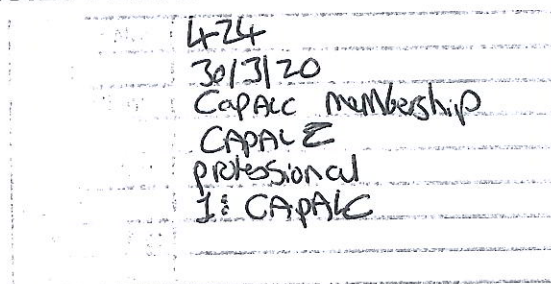 424
30/3/20
CAPALC membership
CAPALC
professional
1: CAPALC